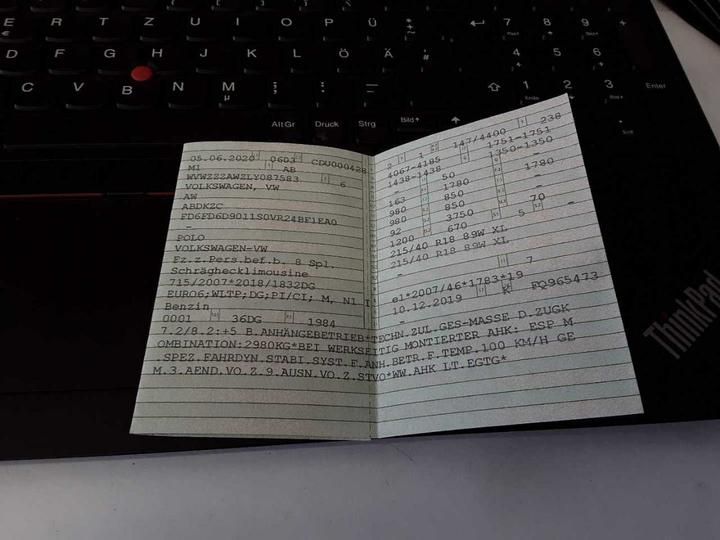 E R T Z U I O P Ü 7 8 9 +
D F G H J K L Ö Ä 4 5 6
C V B N M 1 2 3 Enter
µ
AltGr Druck Strg Bild+ 0
ThinkPad
05.06.2020 0603 CDU000428
M1 AB
WVWZZZAWZLY087583 6
VOLKSWAGEN, VW
AW
ABDKZC
FD6FD6D9011S0VR24BF1EA0
-
POLO
VOLKSWAGEN-VW
Fz.z.Pers.bef.b. 8 Spl.
Schräghecklimousine
715/2007*2018/1832DG
EURO6;WLTP;DG;PI/CI; M, N1 I
Benzin
0001 36DG 1984
2 1 147/4400 238
4067-4185 1751-1751
1438-1438 1350-1350
- 50 - 1780
163 1780 -
980 850 -
980 850 -
92 3750 70
1200 670 5 -
215/40 R18 89W XL
215/40 R18 89W XL
- 7
e1*2007/46*1783*19
10.12.2019 K FQ965473
-
7.2/8.2:+5 B.ANHÄNGEBETRIEB*TECHN.ZUL.GES-MASSE D.ZUGK
OMBINATION:2980KG*BEI WERKSEITIG MONTIERTER AHK: ESP M
.SPEZ.FAHRDYN.STABI.SYST.F.ANH.BETR.F.TEMP.100 KM/H GE
M.3.AEND.VO.Z.9.AUSN.VO.Z.STVO*WW.AHK LT.EGTG*